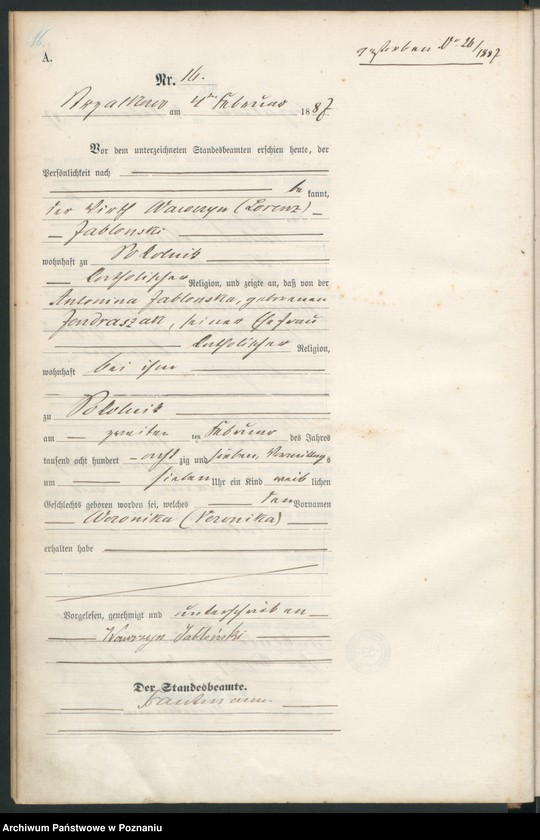 16.
A.
gestorben No 26/1887
Nr. 16.
am 4ten Februar 1887
Vor dem unterzeichneten Standesbeamten erschien heute, der
Persönlichkeit nach
be kannt,
der Wirth Wawrzyn (Lorenz)
Jablonski
wohnhaft zu
katholischer Religion, und zeigte an, daß von der
Antonina Jablonska, geborenen
Jendraszak, seiner Ehefrau
katholischer Religion,
wohnhaft bei ihm
zu
am zweiten ten Februar des Jahres
tausend acht hundert acht zig und sieben, Vormittags
um sieben Uhr ein Kind weib lichen
Geschlechts geboren worden sei, welches den Vornamen
Weronika (Veronika)
erhalten habe
Vorgelesen, genehmigt und unterschrieben
Wawrzyn Jabłoński
Der Standesbeamte.
Archiwum Państwowe w Poznaniu